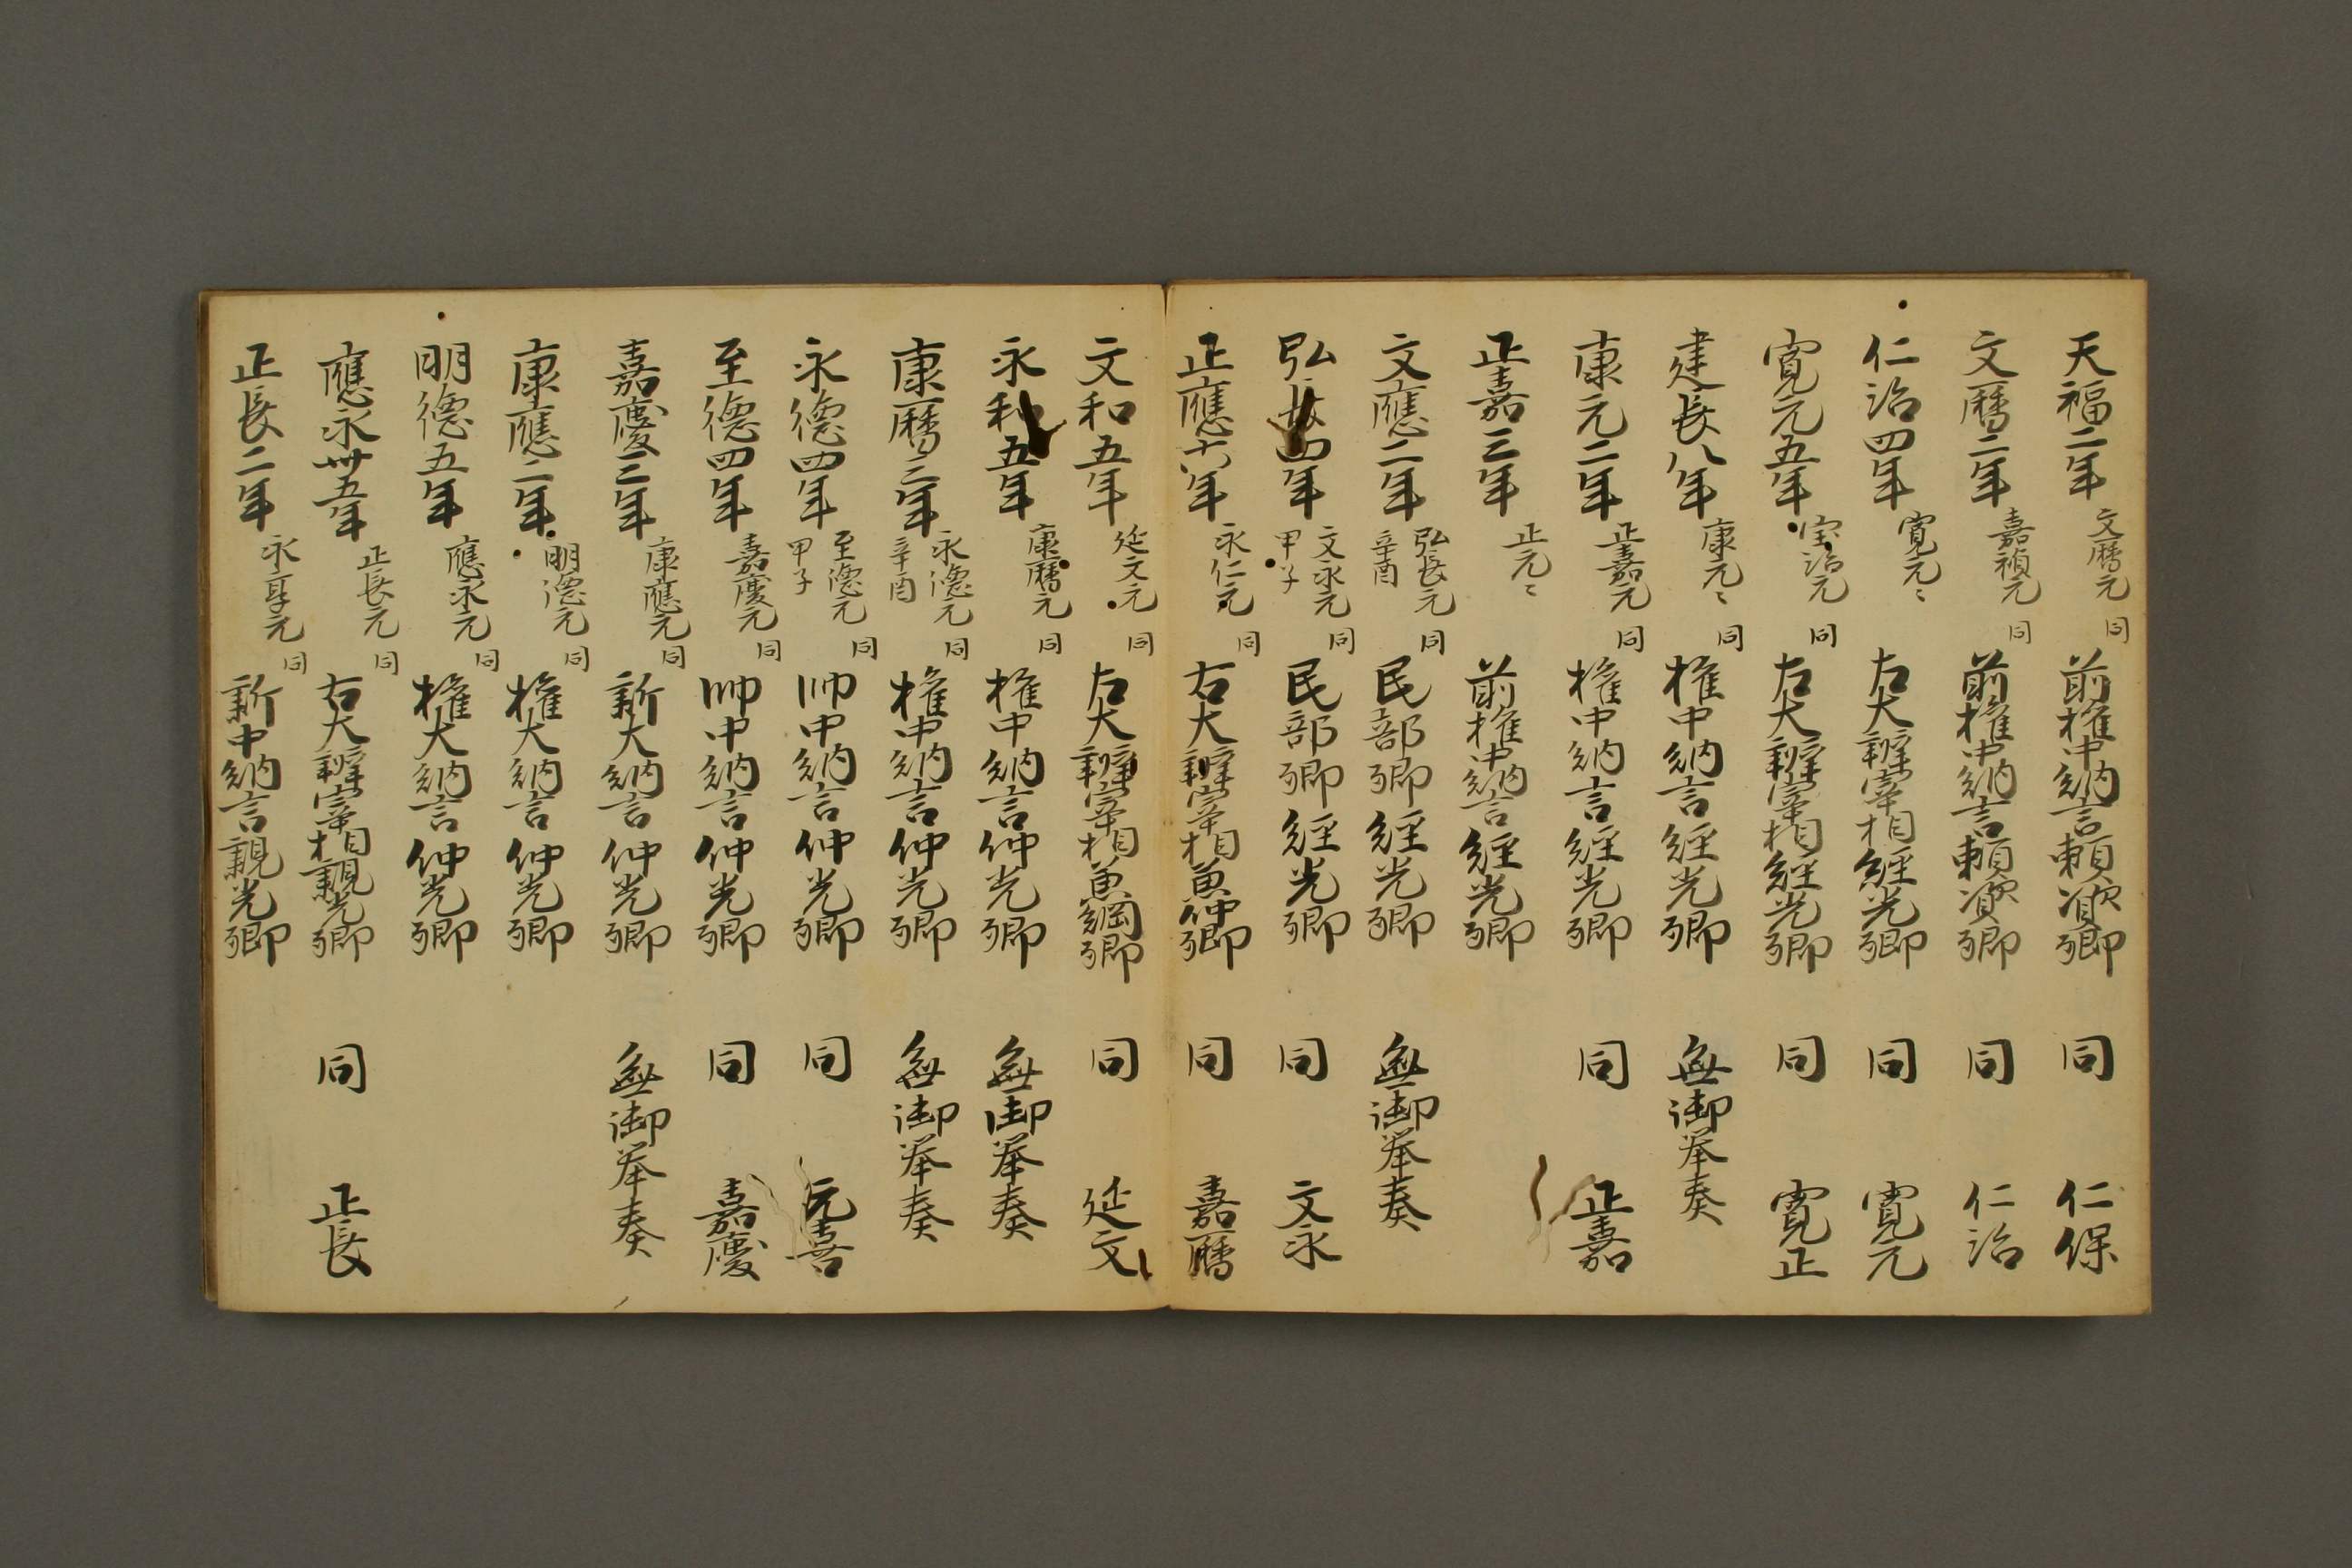 天福二年 文暦元 同 前権中納言頼資卿 同 仁保
文暦二年 嘉禎元 同 前権中納言頼資卿 同 仁治
仁治四年 寛元〻 左大辨宰相経光卿 同 寛元
寛元五年 宝治元 同 左大辨宰相経光卿 同 寛正
建長八年 康元〻 同 権中納言経光卿 無御挙奏
康元二年 正嘉元 同 権中納言経光卿 同 正嘉
正嘉三年 正元〻 前権中納言経光卿
文應二年 弘長元 辛酉 同 民部卿経光卿 無御挙奏
弘長四年 文永元 甲子 同 民部卿経光卿 同 文永
正應六年 永仁元 同 右大辨宰相兼仲卿 同 嘉暦
文和五年 延文元 同 左大辨宰相兼綱卿 同 延文
永和五年 康暦元 同 権中納言仲光卿 無御挙奏
康暦三年 永德元 辛酉 同 権中納言仲光卿 無御挙奏
永德四年 至德元 甲子 同 帥中納言仲光卿 同 元喜
至德四年 嘉慶元 同 帥中納言仲光卿 同 嘉慶
嘉慶三年 康應元 同 新大納言仲光卿 無御挙奏
康應二年 明德元 同 権大納言仲光卿
明德五年 應永元 同 権大納言仲光卿
應永卅五年 正長元 同 右大辨宰相親光卿 同 正長
正長二年 永享元 同 新中納言親光卿